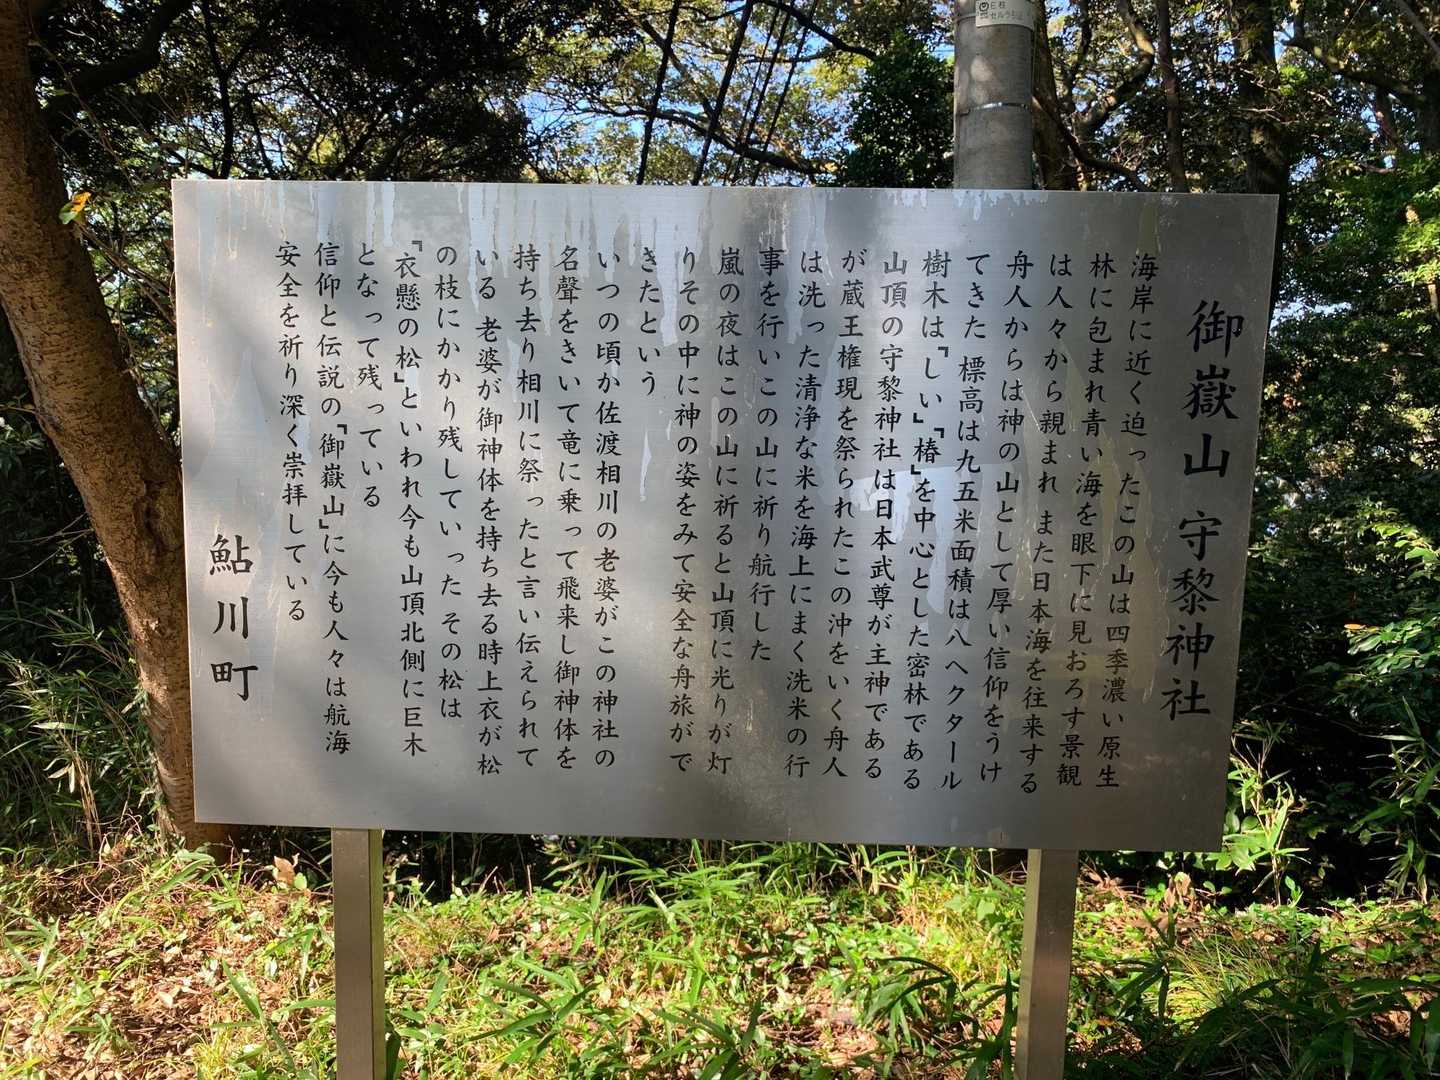 御嶽山 守黎神社
海岸に近く迫ったこの山は四季濃い原生
林に包まれ青い海を眼下に見おろす景観
は人々から親まれ また日本海を往来する
舟人からは神の山として厚い信仰をうけ
てきた 標高は九五米面積は八ヘクタール
樹木は『しい』『椿』を中心とした密林である
山頂の守黎神社は日本武尊が主神である
が蔵王権現を祭られたこの沖をいく舟人
は洗った清浄な米を海上にまく洗米の行
事を行いこの山に祈り航行した
嵐の夜はこの山に祈ると山頂に光りが灯
りその中に神の姿をみて安全な舟旅がで
きたという
いつの頃か佐渡相川の老婆がこの神社の
名聲をきいて竜に乗って飛来し御神体を
持ち去り相川に祭ったと言い伝えられて
いる 老婆が御神体を持ち去る時上衣が松
の枝にかかり残していった その松は
『衣懸の松』といわれ今も山頂北側に巨木
となって残っている
信仰と伝説の『御嶽山』に今も人々は航海
安全を祈り深く崇拝している
鮎川町